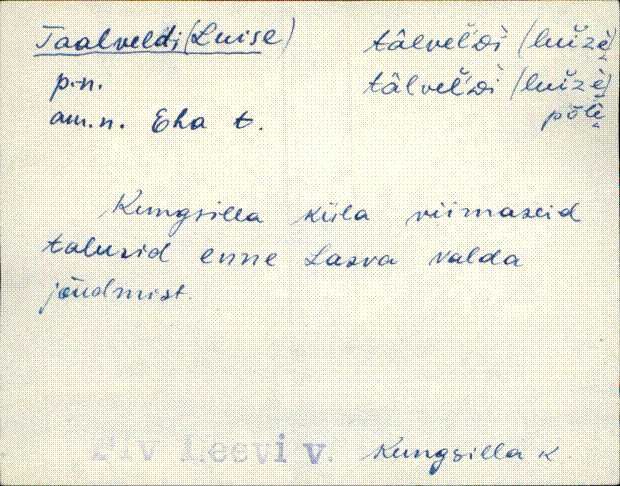 Taalveldi (Luise) tâlvel'di (luizè)
p.n. tâlvel'di (luižè)
am.n. Eha t. põlè
Kungsilla küla viimaseid
talusid enne Lasva valda
jõudmist.
Plv Leevi v. Kungsilla k